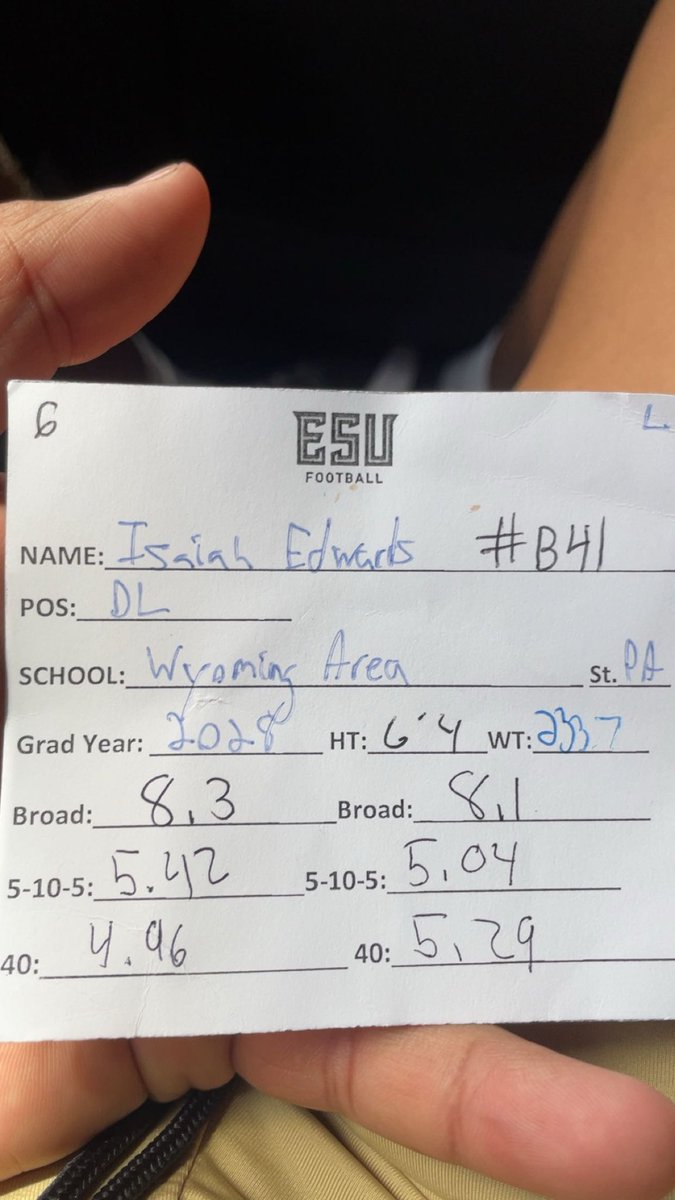 6 L.
ESU
FOOTBALL
NAME: Isaiah Edwards #B41
POS: DL
SCHOOL: Wyoming Area St. PA
Grad Year: 2028 HT: 6'4 WT: 233.7
Broad: 8.3 Broad: 8.1
5-10-5: 5.42 5-10-5: 5.04
40: 4.96 40: 5.29